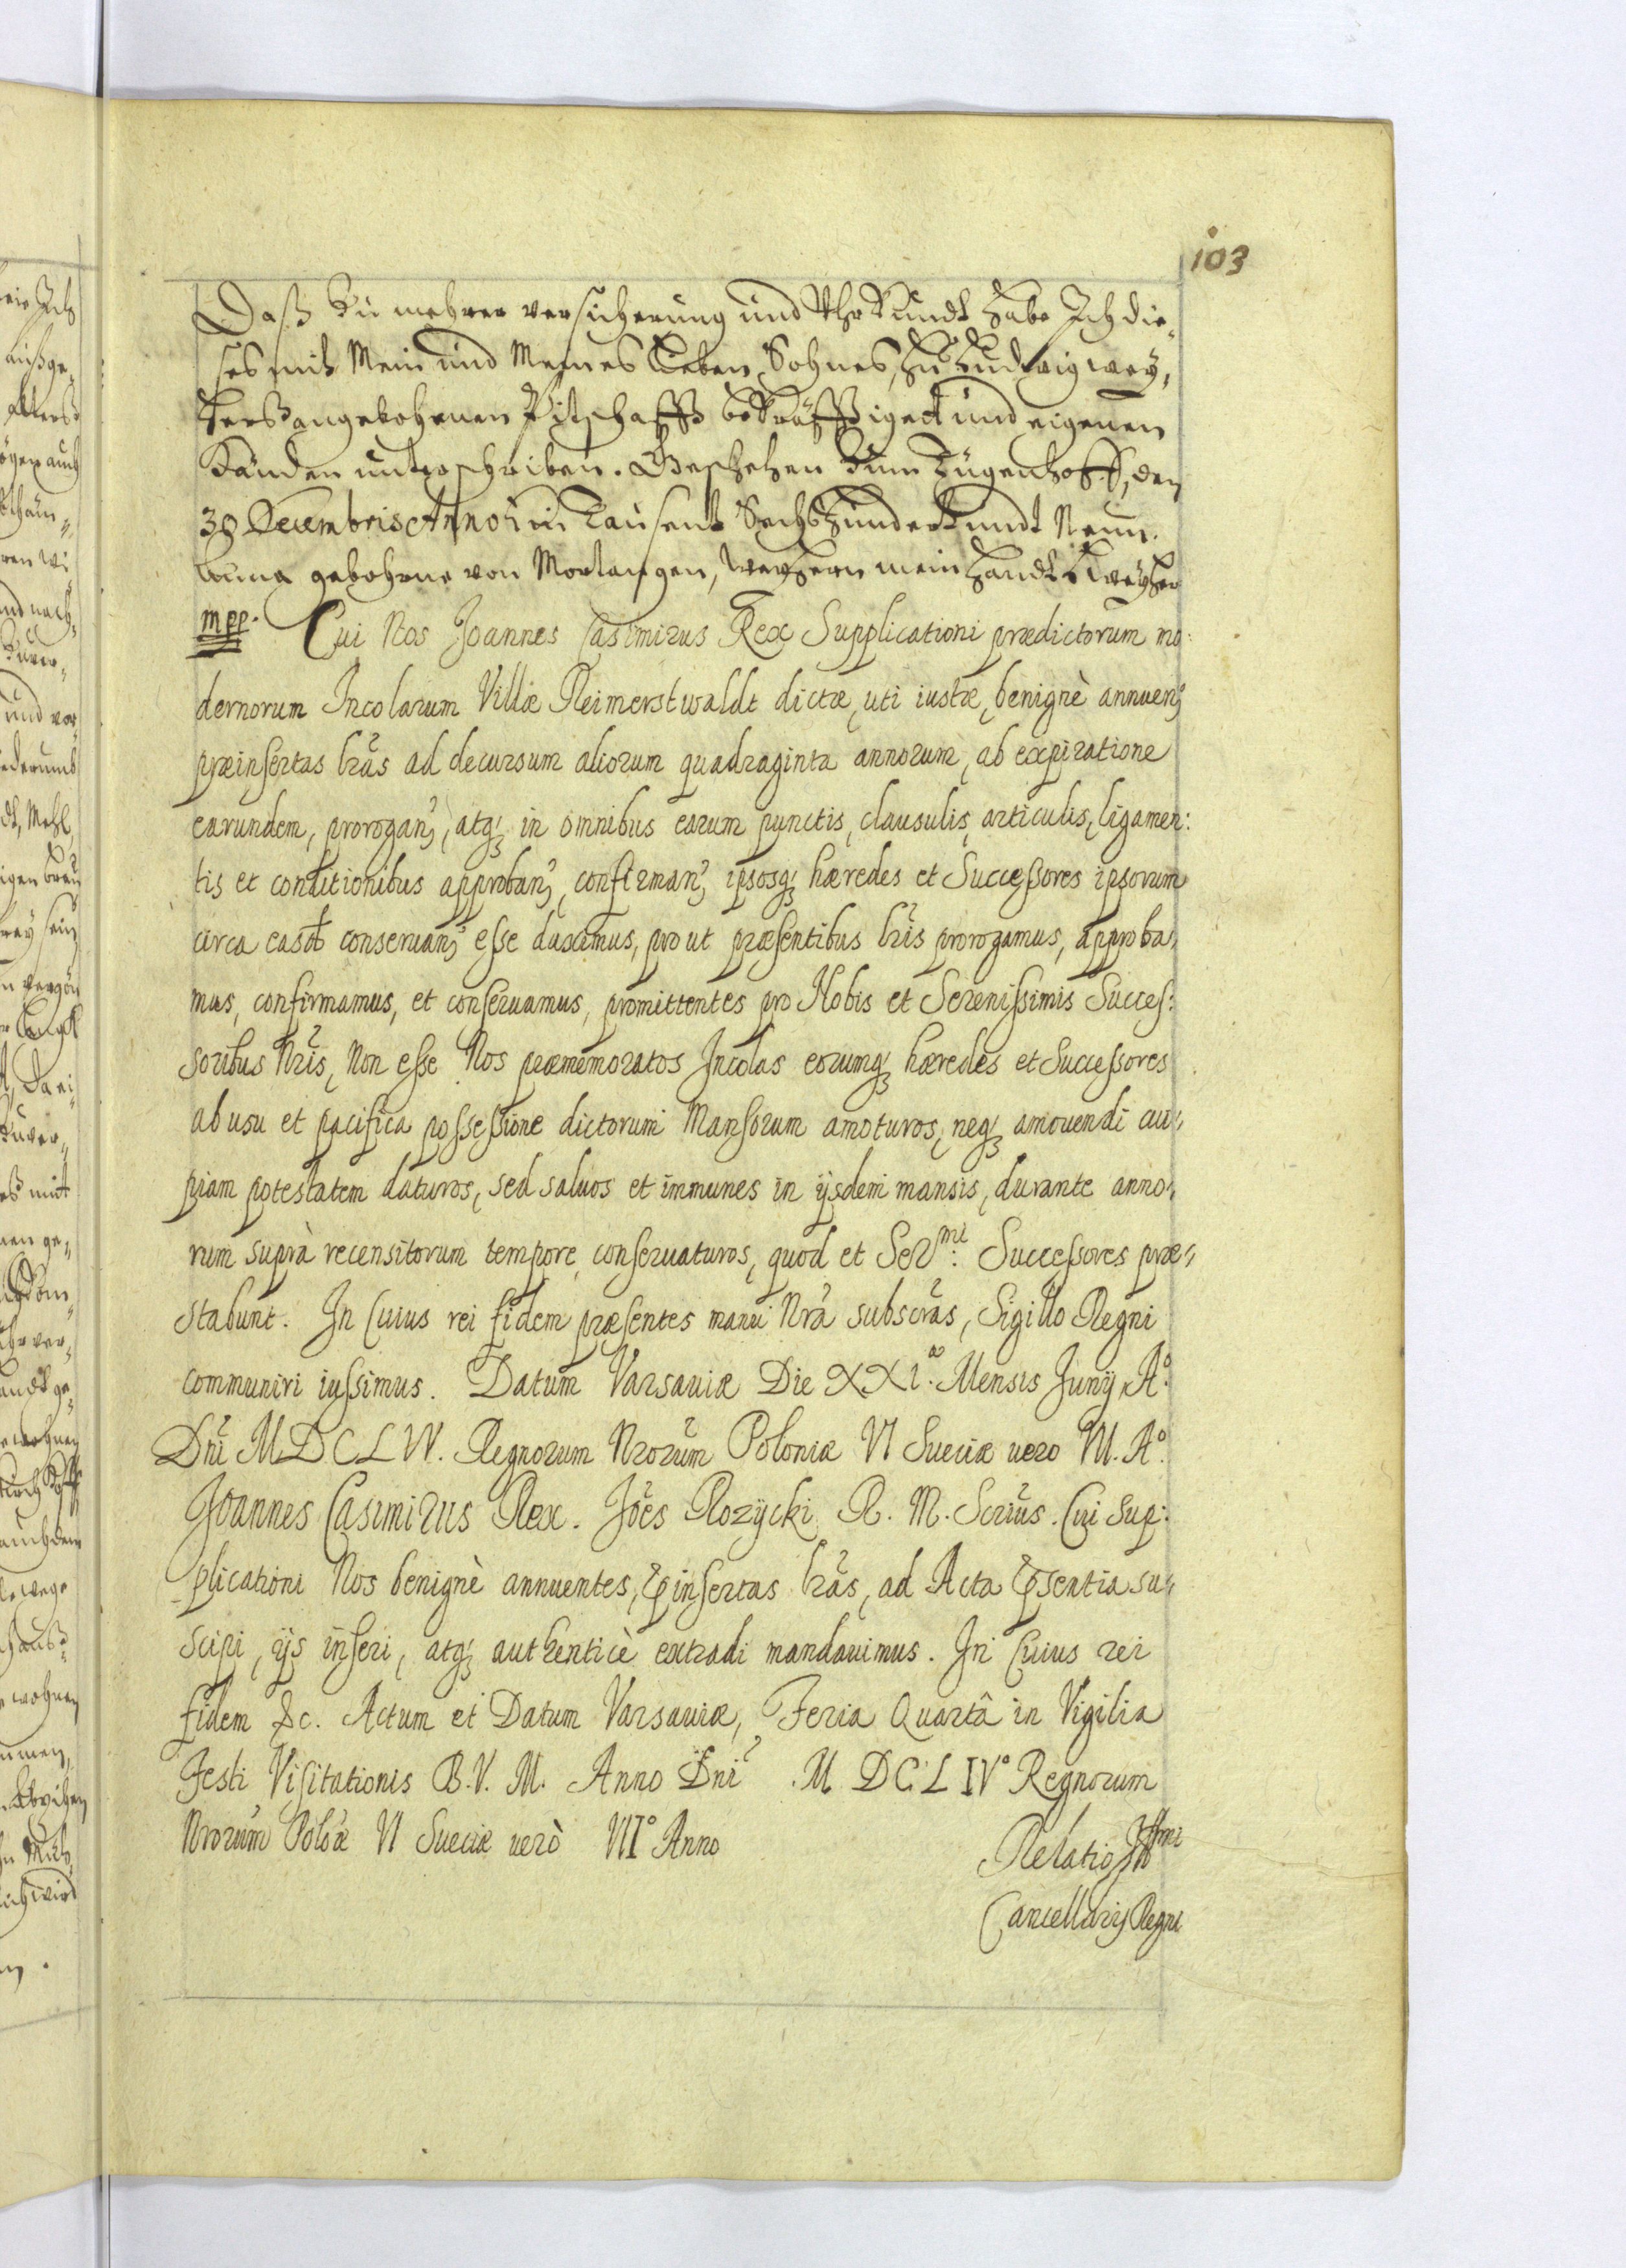 103
Daß Zu mehrer versicherung und Uhrkundt habe Ich die„
ses mit Mein und Meines Lieben Sohnes, H. Ludwig wey„
hers angebohrenen Pitschafft bekräfftiget und eigenen
Händen unterschrieben. Geschehen zum Tügenhoff, den
30 Decembris Anno Ein Tausent Sechshundert undt Neun.
Anna gebohrne von Mortangen, Weyhern mein handt L Weyher
mpp. Cui Nos Joannes Casimirus Rex Supplicationi prædictorum mo:
dernorum Incolarum Villæ Reimerstwaldt dictæ, uti iustæ, benignè annuen̄
præinsertas l̄ras ad decursum aliorum quadraginta annorum, ab expiratione
earundem, prorogan̄, atq₃ in omnibus earum punctis, clausulis, articulis, ligamen:
tis et conditionibus approban̄, confirman̄, ipsosq₃ hæredes et Successores ipsorum
circa easd̄ conseruan̄ esse duximus, prout præsentibus l̄ris prorogamus, approba„
mus, confirmamus, et conseruamus, promittentes pro Nobis et Serenissimis Succes:
soribus Nr̄is, Non esse Nos præmemoratos Incolas eorumq₃ hæredes et Successores
ab usu et pacifica possessione dictorum Mansorum amoturos, neq₃ amouendi cui„
piam potestatem daturos, sed saluos et immunes in ijsdem mansis, durante anno„
rum suprà recensitorum tempore, conseruaturos, quod et Ser^mi: Successores præ„
stabunt. In Cuius rei fidem præsentes manu Nr̄a subscr̄as, Sigillo Regni
communiri iussimus. Datum Varsaviæ Die XXI^a. Mensis Junij A°.
Dn̄i MDCLIV. Regnorum Nrorum̄ Poloniæ VI Sueciæ vero VII. A°.
Joannes Casimirus Rex. Jo͞es Rozycki R. M. Scri͞us. Cui Sup:
plicationi Nos benignè annuentes, p̄insertas l̄ras, ad Acta p̄sentia su„
scipi, ijs inseri, atq₃ authenticè extradi mandauimus. In Cuius rei
fidem &c. Actum et Datum Varsaviæ, Feria Quartâ in Vigilia
Festi Visitationis B. V. M. Anno Dn̄i M. DC. L IV° Regnorum
Nrorum̄ Polo͞æ VI Sueciæ verò VII° Anno
Relatio Ill^mi
Cancellarij Regni